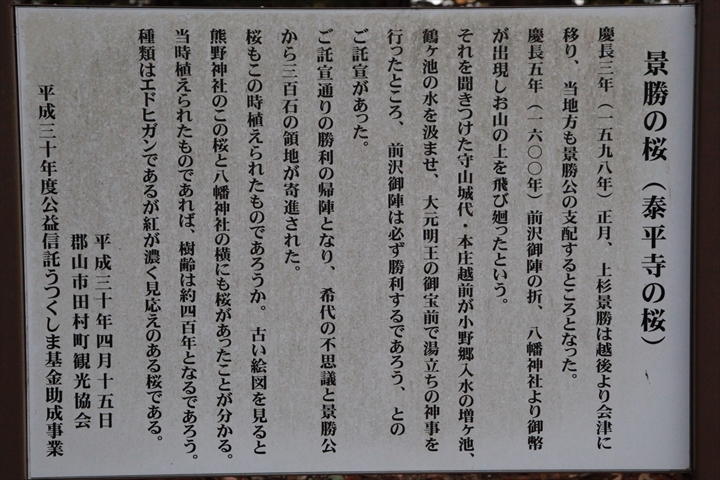 景勝の桜（泰平寺の桜）
慶長三年（一五九八年）正月、上杉景勝は越後より会津に
移り、当地方も景勝公の支配するところとなった。
慶長五年（一六〇〇年）前沢御陣の折、八幡神社より御幣
が出現しお山の上を飛び廻ったという。
それを聞きつけた守山城代・本庄越前が小野郷入水の増ヶ池、
鶴ヶ池の水を汲ませ、大元明王の御宝前で湯立ちの神事を
行ったところ、前沢御陣は必ず勝利するであろう、との
ご託宣があった。
ご託宣通りの勝利の帰陣となり、希代の不思議と景勝公
から三百石の領地が寄進された。
桜もこの時植えられたものであろうか。古い絵図を見ると
熊野神社のこの桜と八幡神社の横にも桜があったことが分かる。
当時植えられたものであれば、樹齢は約四百年となるであろう。
種類はエドヒガンであるが紅が濃く見応えのある桜である。
平成三十年四月十五日
郡山市田村町観光協会
平成三十年度公益信託うつくしま基金助成事業